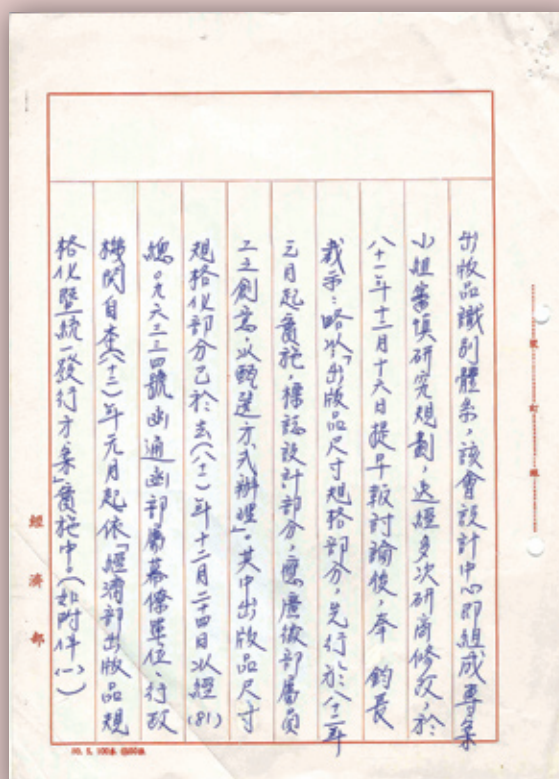 出版品識別體系，該會設計中心即組成專案
小組審慎研究規劃，迭經多次研商修改，於
八十一年十二月十六日提早報討論後，奉　鈞長
裁示：略以「出版品尺寸規格部分，先行於八十二年
元月起實施，標誌設計部分，應廣徵部屬員
工之創意，以甄選方式辦理」。其中出版品尺寸
規格化部分已於去(八十一)年十二月二十四日以經(81)
總〇九六三三四號函通函部屬幕僚單位、行政
機關自本(八十二)年元月起依「經濟部出版品規
格化暨統一發行方案」實施中。(如附件(一))
經濟部
裝訂線